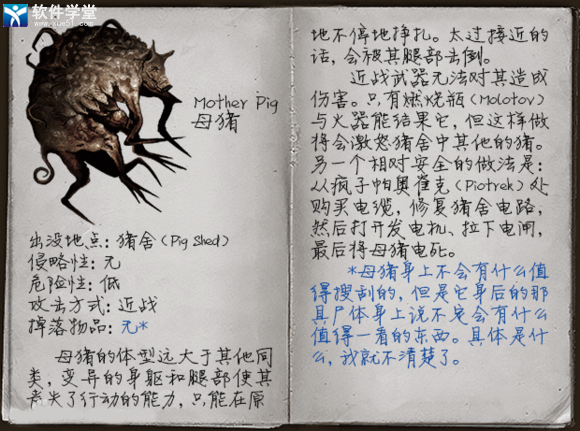 软件学堂
www.xue51.com
Mother Pig
母猪
出没地点：猪舍（Pig Shed）
侵略性：无
危险性：低
攻击方式：近战
掉落物品：无*
母猪的体型远大于其他同
类，变异的身躯和腿部使其
丧失了行动的能力，只能在原
地不停地挣扎。太过接近的
话，会被其腿部击倒。
近战武器无法对其造成
伤害。只有燃烧瓶（Molotov）
与火器能结果它，但这样做
将会激怒猪舍中其他的猪。
另一个相对安全的做法是：
从疯子帕奥崔克（Piotrek）处
购买电缆，修复猪舍电路，
然后打开发电机、拉下电闸，
最后将母猪电死。
*母猪身上不会有什么值
得搜刮的，但是它身后的那
具尸体身上说不定会有什么
值得一看的东西。具体是什
么，我就不清楚了。